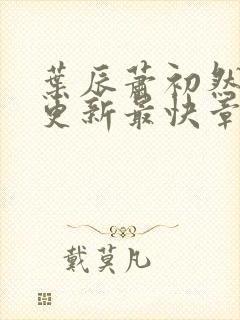 葉辰蕭初然
更新最快章
戴莫凡